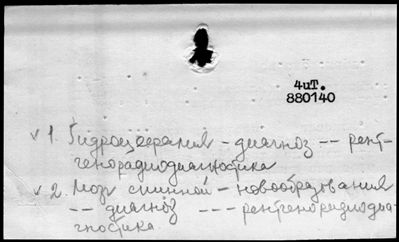 4иТ.
880140
✓ 1. Гидроцефалия - диагноз -- рент-
генорадиодиагностика
✓ 2. Мозг спинной - новообразования
-- диагноз --- рентгенорадиодиа-
гностика